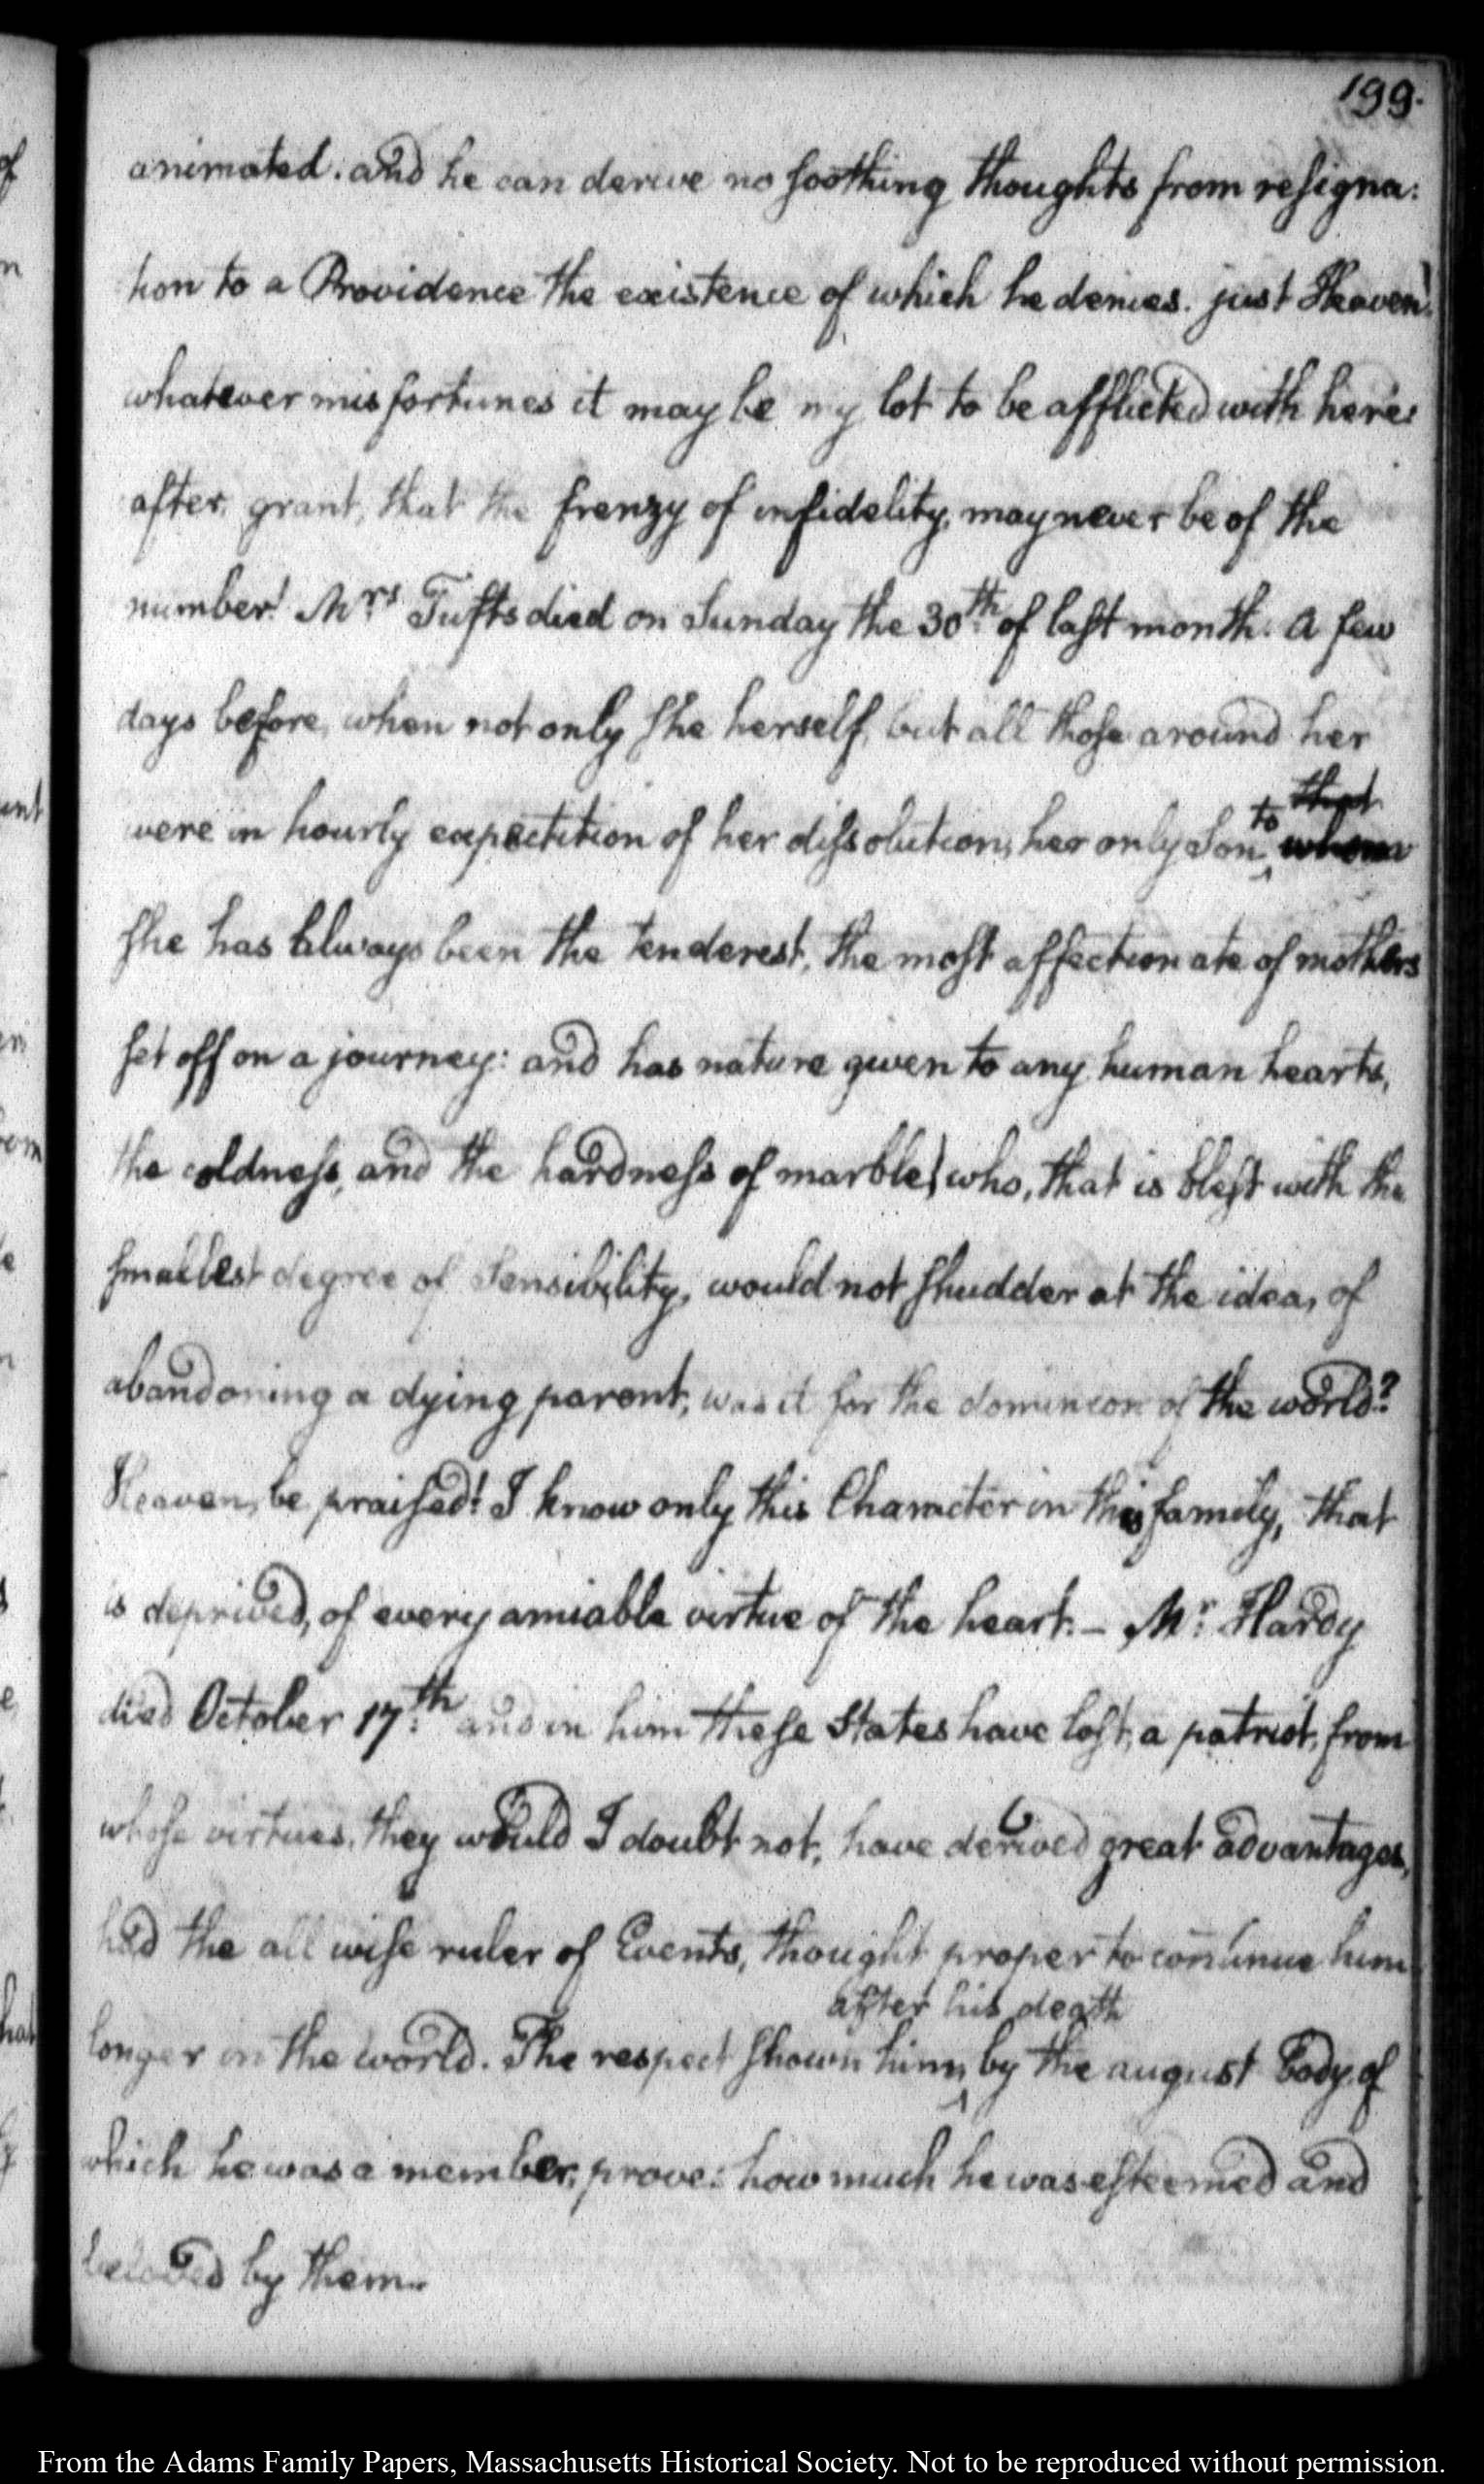 199.
animated. and he can derive no soothing thoughts from resigna:
tion to a Providence the existence of which he denies. just Heaven!
whatever misfortunes it may be my lot to be afflicted with here:
after, grant, that the frenzy of infidelity, may never be of the
number! Mrs. Tufts died on Sunday the 30th. of last month. A few
days before, when not only she herself, but all those around her
were in hourly expectition of her dissolution, her only Son, to that whom
she has always been the tenderest, the most affectionate of mothers
set off on a journey: and has nature given to any human hearts,
the coldness, and the hardness of marble! who, that is blest with the
smallest degree of Sensibility, would not shudder at the idea, of
abandoning a dying parent, was it for the dominion of the world?
Heaven, be praised! I know only this Character in this family, that
is deprived, of every amiable virtue of the heart.— Mr. Hardy
died October 17th. and in him these States have lost, a patriot, from
whose virtues, they would I doubt not, have derived great advantages,
had the all wise ruler of Events, thought proper to continue him
after his death
longer in the world. The respect shown him, by the august body of
which he was a member, prove: how much he was esteemed and
beloved by them.
of
n
ent
en
rom
le
n
s
e
hat
From the Adams Family Papers, Massachusetts Historical Society. Not to be reproduced without permission.